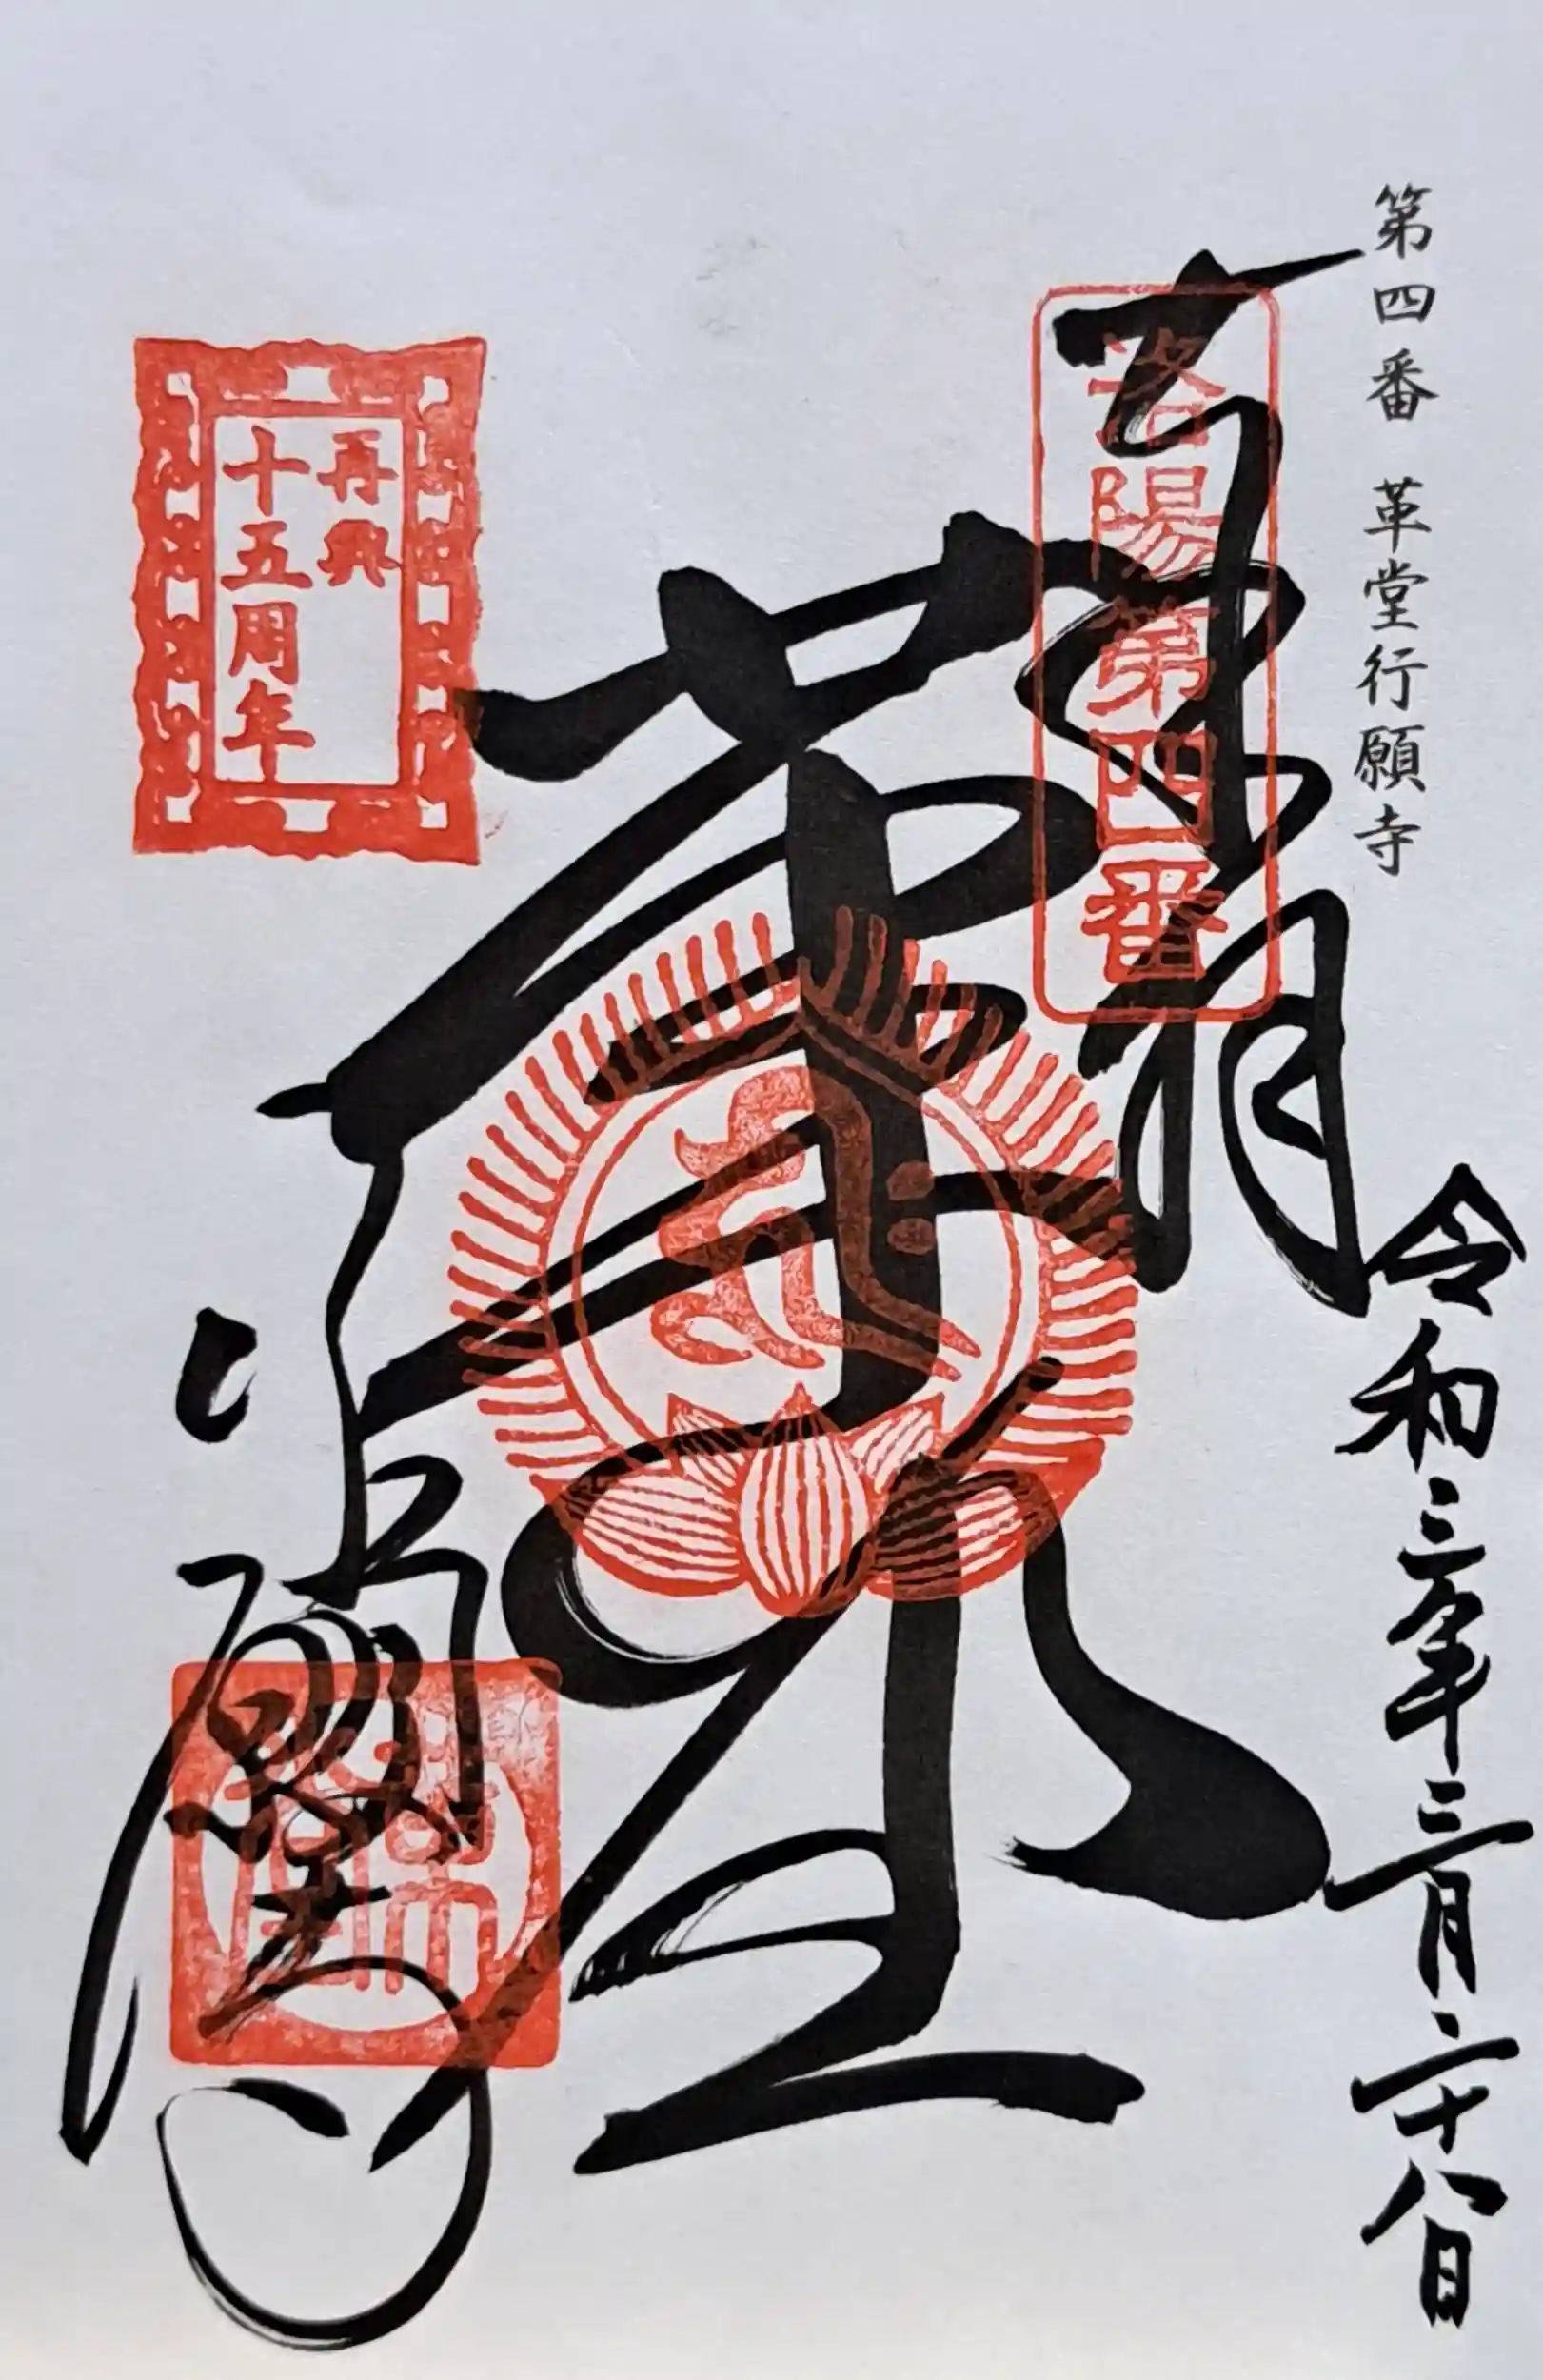 第四番 革堂行願寺
奉拝
洛陽第四番
令和三年三月二十八日
革堂
再興
十五周年